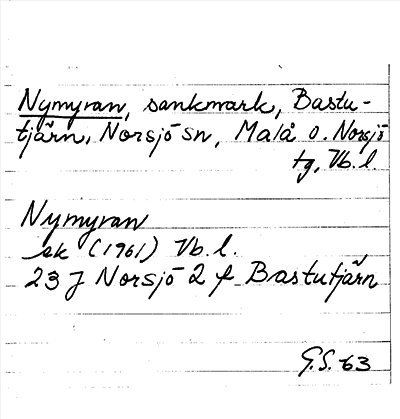 Nymyran, sankmark, Bastu-
tjärn, Norsjö sn, Malå o. Norsjö
tg, Vb. l.
Nymyran
ek (1961) Vb. l.
23 J Norsjö 2 f Bastutjärn
G.S. 63